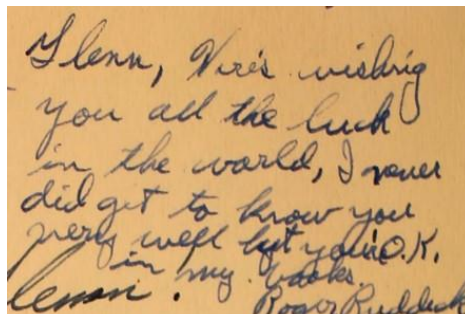 Glenn, Here's wishing
you all the luck
in the world, I never
did get to know you
very well but your O.K.
in my books.
Roger Ruddick